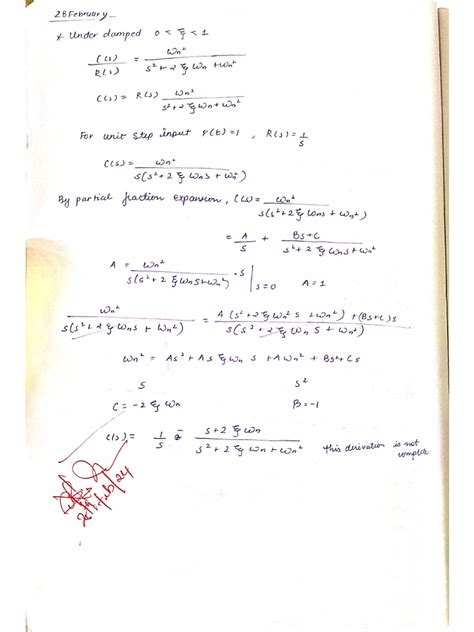 28 February
* Under damped 0 < ξ < 1
C(s)/R(s) = ωn²/(s² + 2 ξ ωn + ωn²)
C(s) = R(s) ωn²/(s² + 2 ξ ωn + ωn²)
For unit step input r(t) = 1 , R(s) = 1/s
C(s) = ωn²/(s(s² + 2 ξ ωn s + ωn²))
By partial fraction expansion, C(s) = ωn²/(s(s² + 2 ξ ωn s + ωn²))
= A/s + (Bs + C)/(s² + 2 ξ ωn s + ωn²)
A = ωn²/(s(s² + 2 ξ ωn s + ωn²)) · s | s = 0 A = 1
ωn²/(s(s² + 2 ξ ωn s + ωn²)) = (A (s² + 2 ξ ωn² s + ωn²) + (Bs + C) s)/(s(s² + 2 ξ ωn s + ωn²))
ωn² = As² + As ξ ωn s + Aωn² + Bs² + Cs
s s²
C = -2 ξ ωn B = -1
C(s) = 1/s - (s + 2 ξ ωn)/(s² + 2 ξ ωn + ωn²) this derivation is not
complete